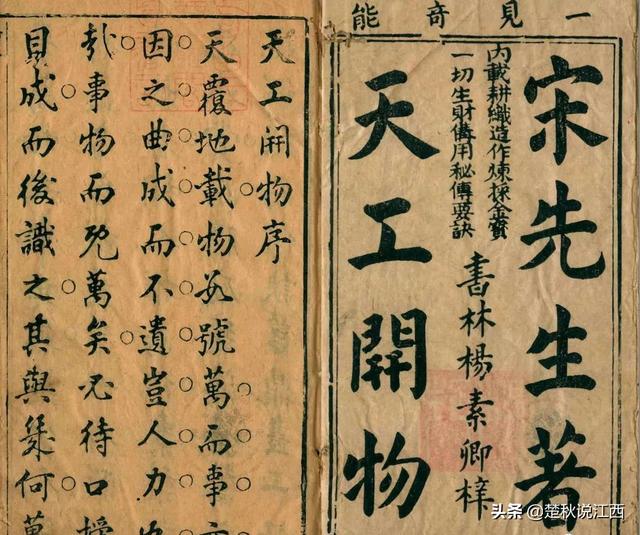 一見奇能
宋先生著
内載耕織造作煉採金寶
一切生財備用秘傳要訣
書林楊素卿梓
天工開物
天工開物序
天覆地載物数號萬而事
因之曲成而不遺豈人力
哉事物而既萬矣必待口授
目成而後識之其與幾何萬
头条 @楚秋说江西